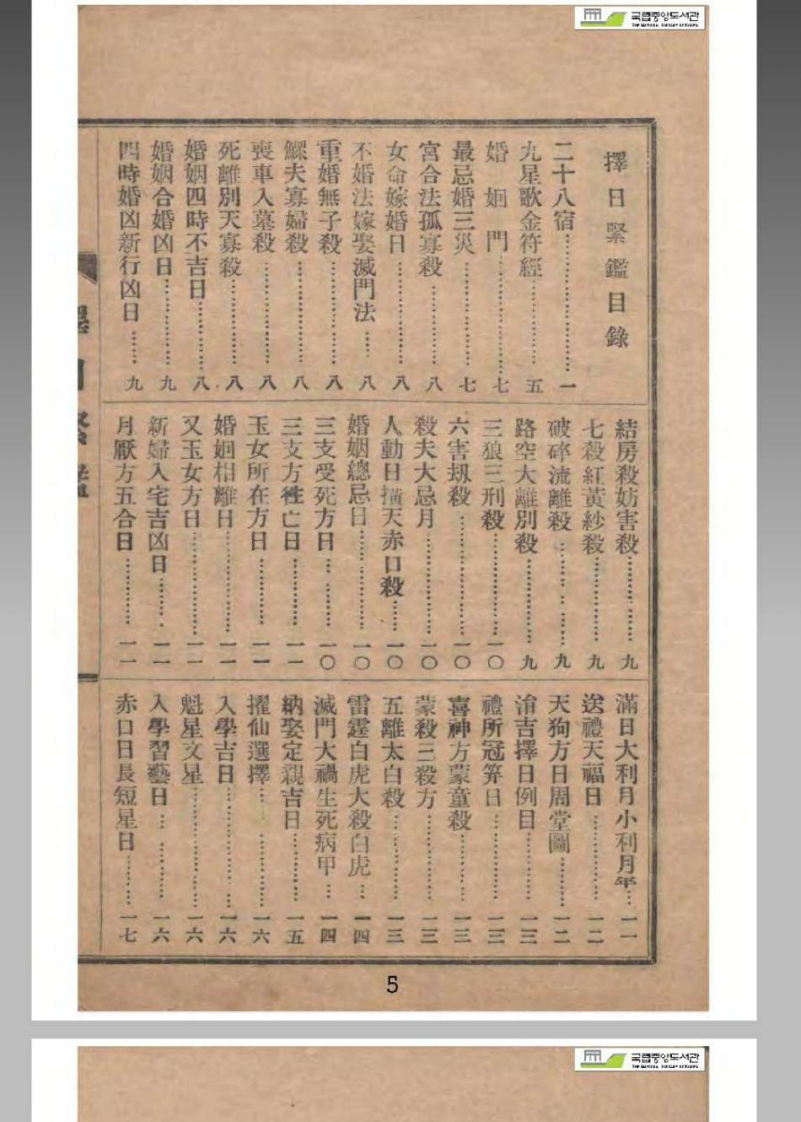 국립중앙도서관
THE NATIONAL LIBRARY OF KOREA
擇日緊鑑目錄
二十八宿……一
九星歌金符經……五
婚姻門……七
最忌婚三災……七
宮合法孤寡殺……八
女命嫁婚日……八
不婚法嫁娶滅門法……八
重婚無子殺……八
鰥夫寡婦殺……八
喪車入墓殺……八
死離別天寡殺……八
婚姻四時不吉日……八
婚姻合婚凶日……九
四時婚凶新行凶日……九
結房殺妨害殺……九
七殺紅黃紗殺……九
破碎流離殺……九
路空大離別殺……九
三狼三刑殺……一〇
六害刼殺……一〇
殺夫大忌月……一〇
人動日橫天赤口殺……一〇
婚姻總忌日……一〇
三支受死方日……一〇
三支方徃亡日……一一
玉女所在方日……一一
婚姻相離日……一一
又玉女方日……一一
新婦入宅吉凶日……一一
月厭方五合日……一一
滿日大利月小利月年…一一
送禮天福日……一二
天狗方日周堂圖……一二
涓吉擇日例目……一三
禮所冠筓日……一三
喜神方蒙童殺……一三
蒙殺三殺方……一三
五離太白殺……一三
雷霆白虎大殺白虎…一四
滅門大禍生死病甲…一四
納娶定親吉日……一五
擢仙選擇……一六
入學吉日……一六
魁星文星……一六
入學習藝日……一六
赤口日長短星日……一七
擇日緊鑑
5
국립중앙도서관
THE NATIONAL LIBRARY OF KOREA